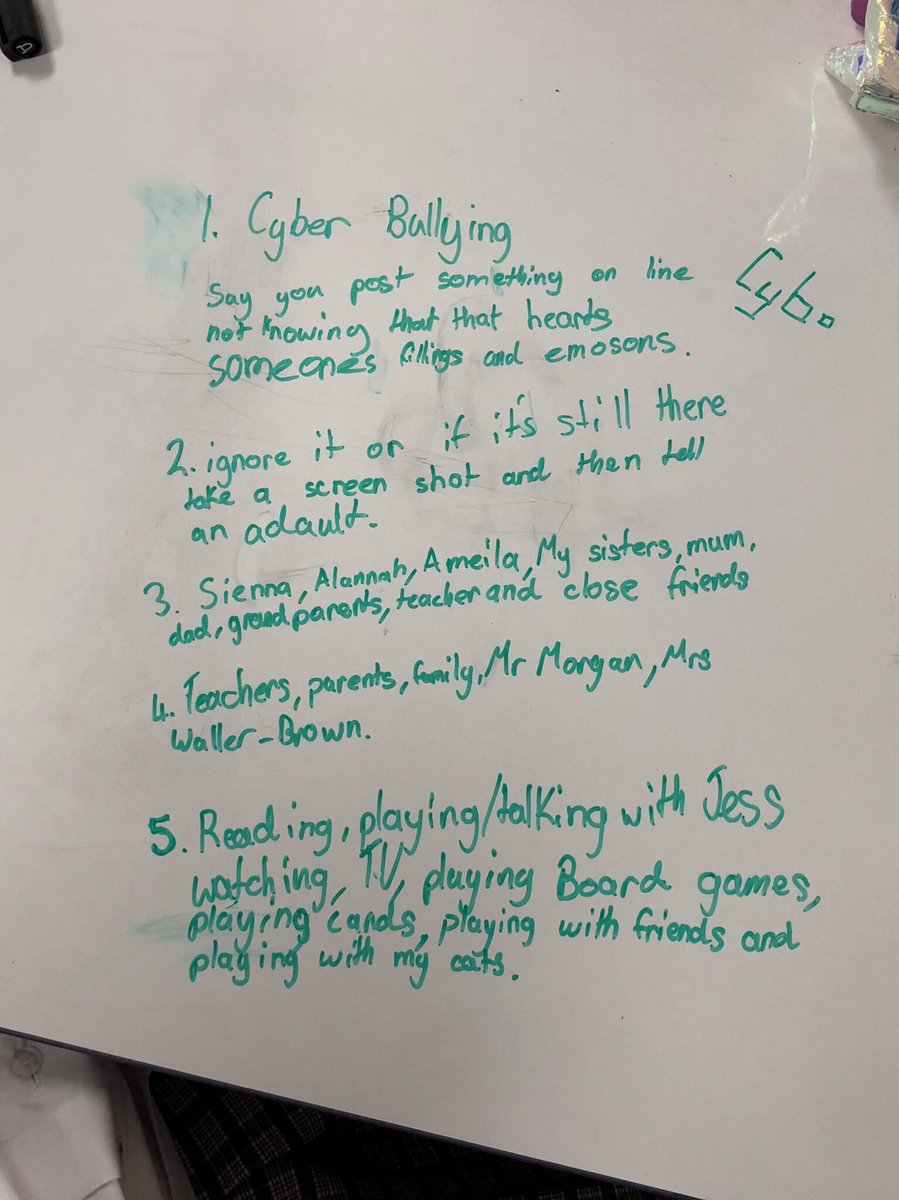 1. Cyber Bullying
Say you post something on line
not knowing that that hearts
someones fillings and emosons.
Cyb.
2. ignore it or if it's still there
take a screen shot and then tell
an adault.
3. Sienna, Alannah, Ameila, My sisters, mum,
dad, grandparents, teacher and close friends
4. Teachers, parents, family, Mr Morgan, Mrs
Waller-Brown.
5. Reading, playing/talking with Jess
watching, TV, playing Board games,
playing cards, playing with friends and
playing with my cats.